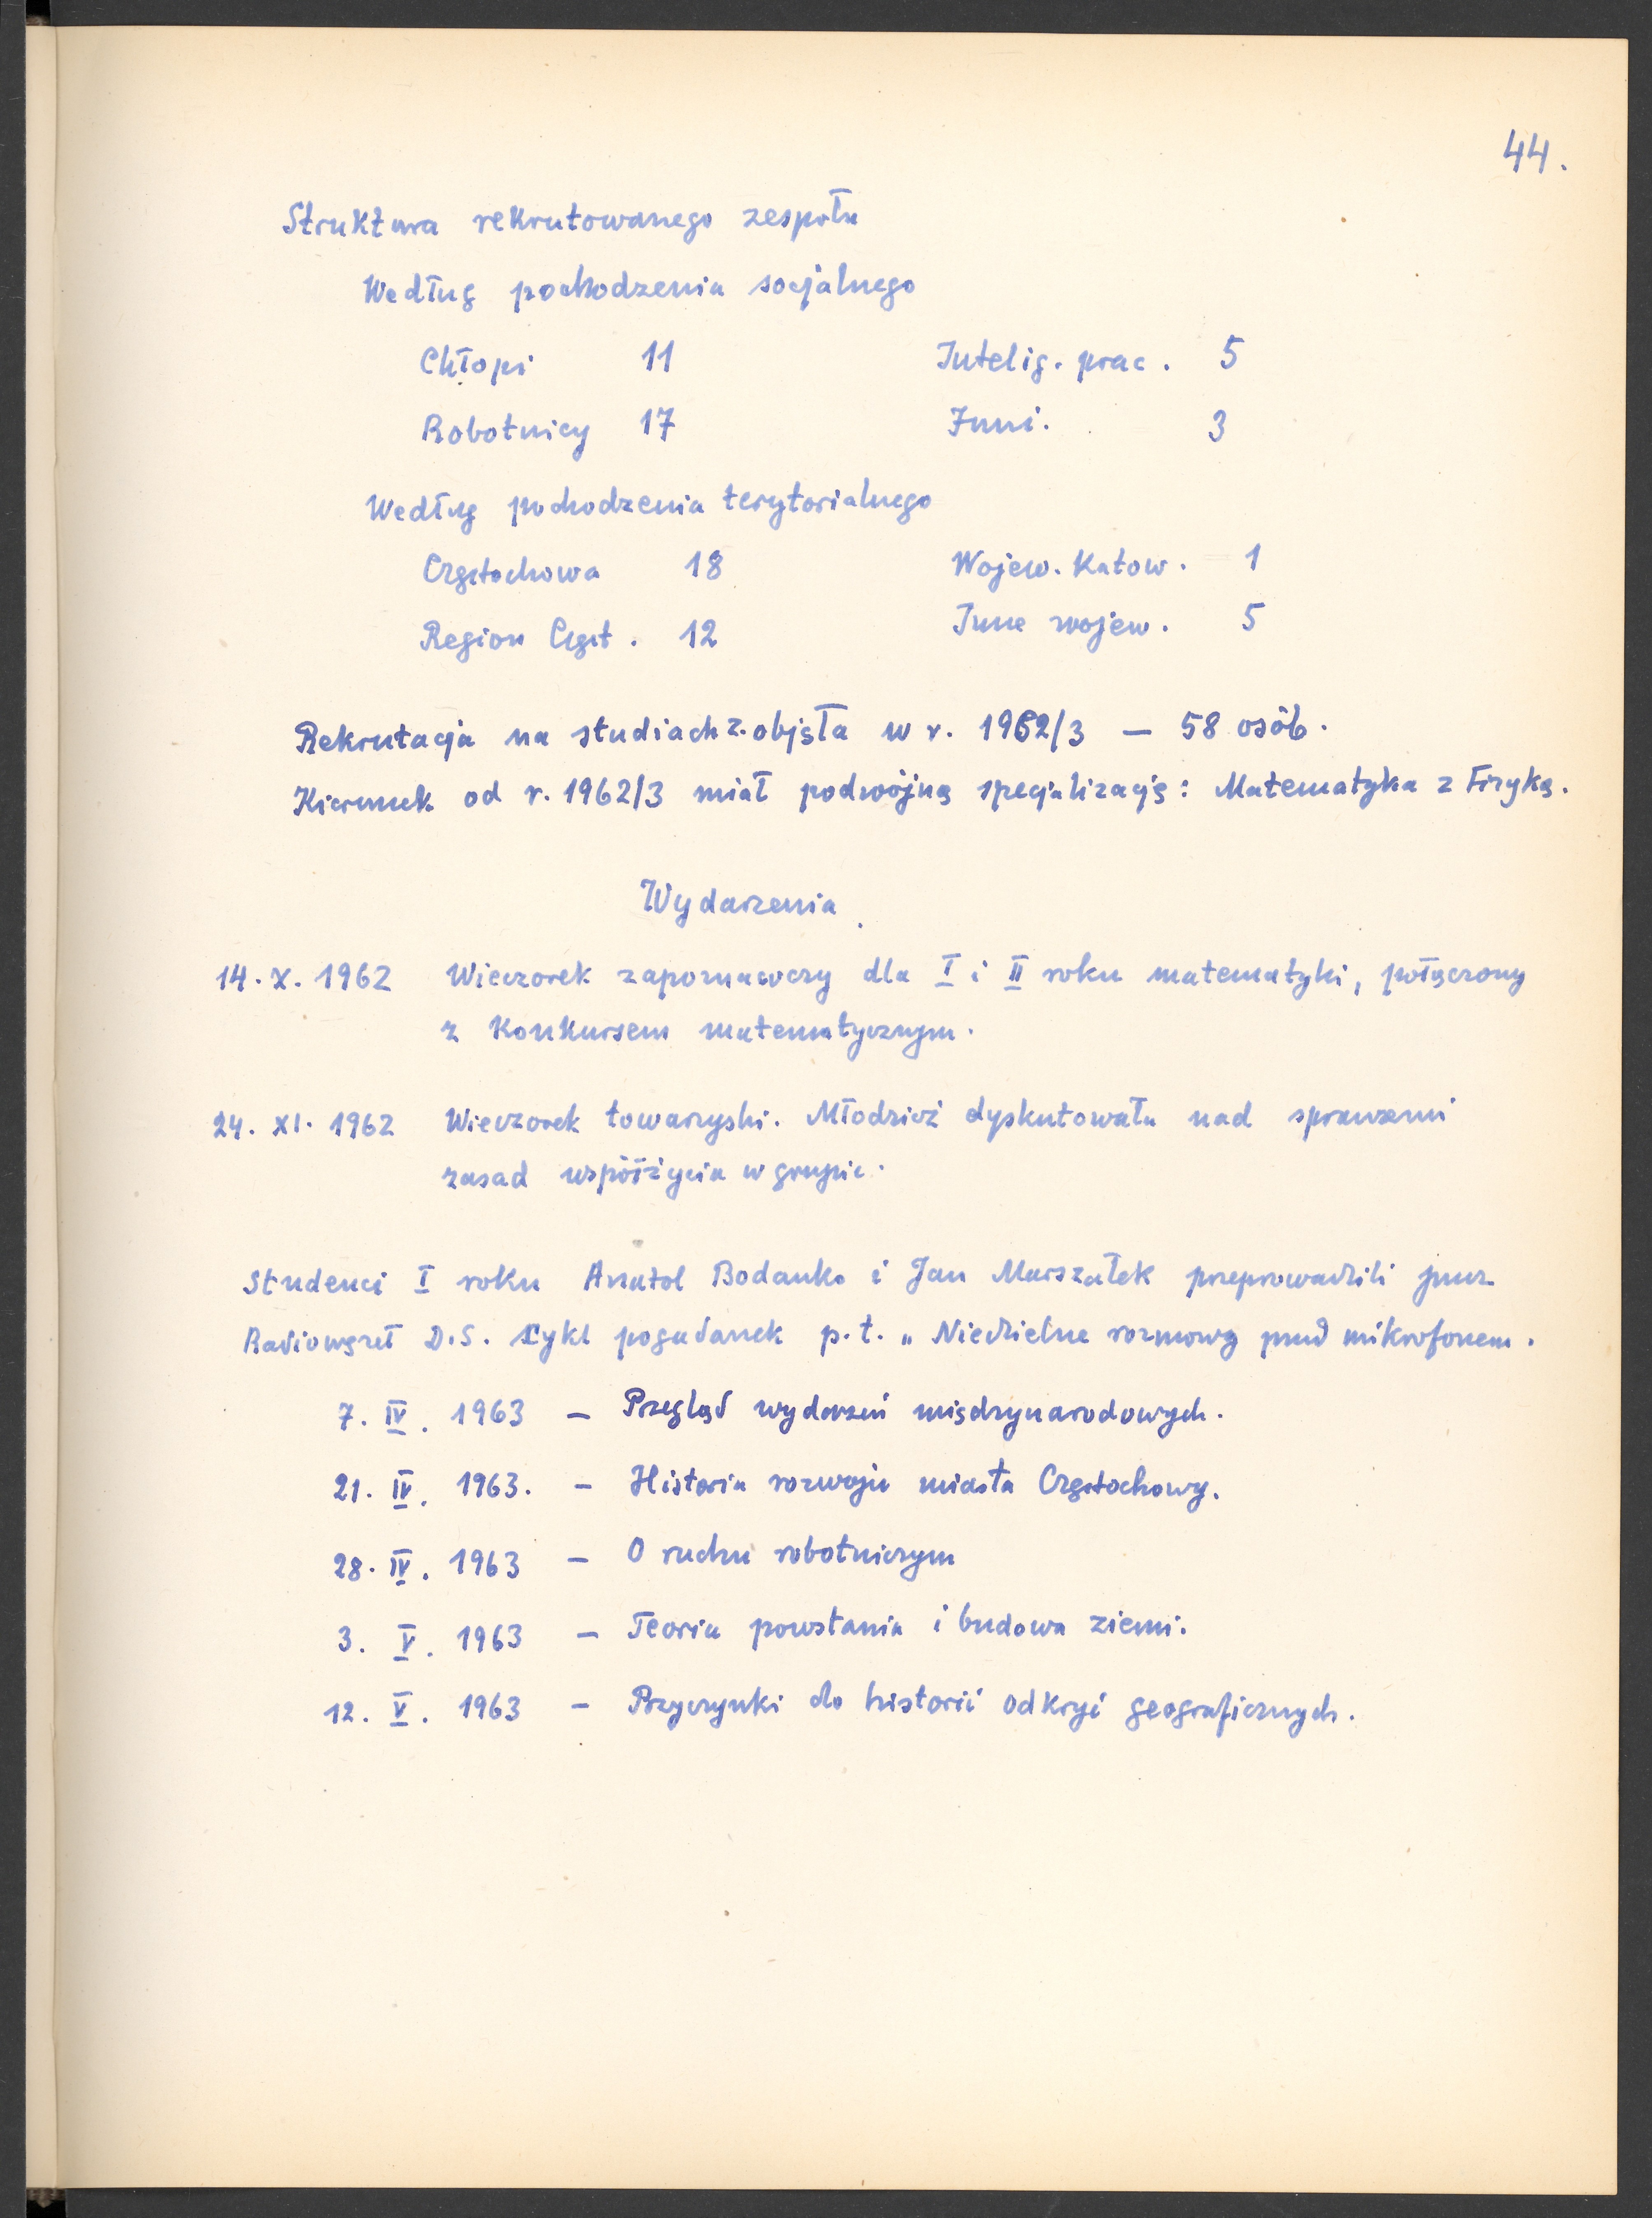 44.
Struktura rekrutowanego zespołu
Według pochodzenia socjalnego
Chłopi 11 Intelig. prac. 5
Robotnicy 17 Inni. 3
Według pochodzenia terytorialnego
Częstochowa 18 Wojew. Katow. 1
Region Częst. 12 Inne wojew. 5
Rekrutacja na studiach z. objęła w r. 1962/3 — 58 osób.
Kierunek od r. 1962/3 miał podwójną specjalizację: Matematyka z Fizyką.
Wydarzenia
14. X. 1962 Wieczorek zapoznawczy dla I i II roku matematyki, połączony
z konkursem matematycznym.
24. XI. 1962 Wieczorek towarzyski. Młodzież dyskutowała nad sprawami
zasad współżycia w grupie.
Studenci I roku Anatol Bodanko i Jan Marszałek przeprowadzili przez
Radiowęzeł D.S. cykl pogadanek p.t. „Niedzielne rozmowy przed mikrofonem.
7. IV. 1963 — Przegląd wydarzeń międzynarodowych.
21. IV. 1963. — Historia rozwoju miasta Częstochowy.
28. IV. 1963 — O ruchu robotniczym
3. V. 1963 — Teoria powstania i budowa ziemi.
12. V. 1963 — Przyczynki do historii odkryć geograficznych.